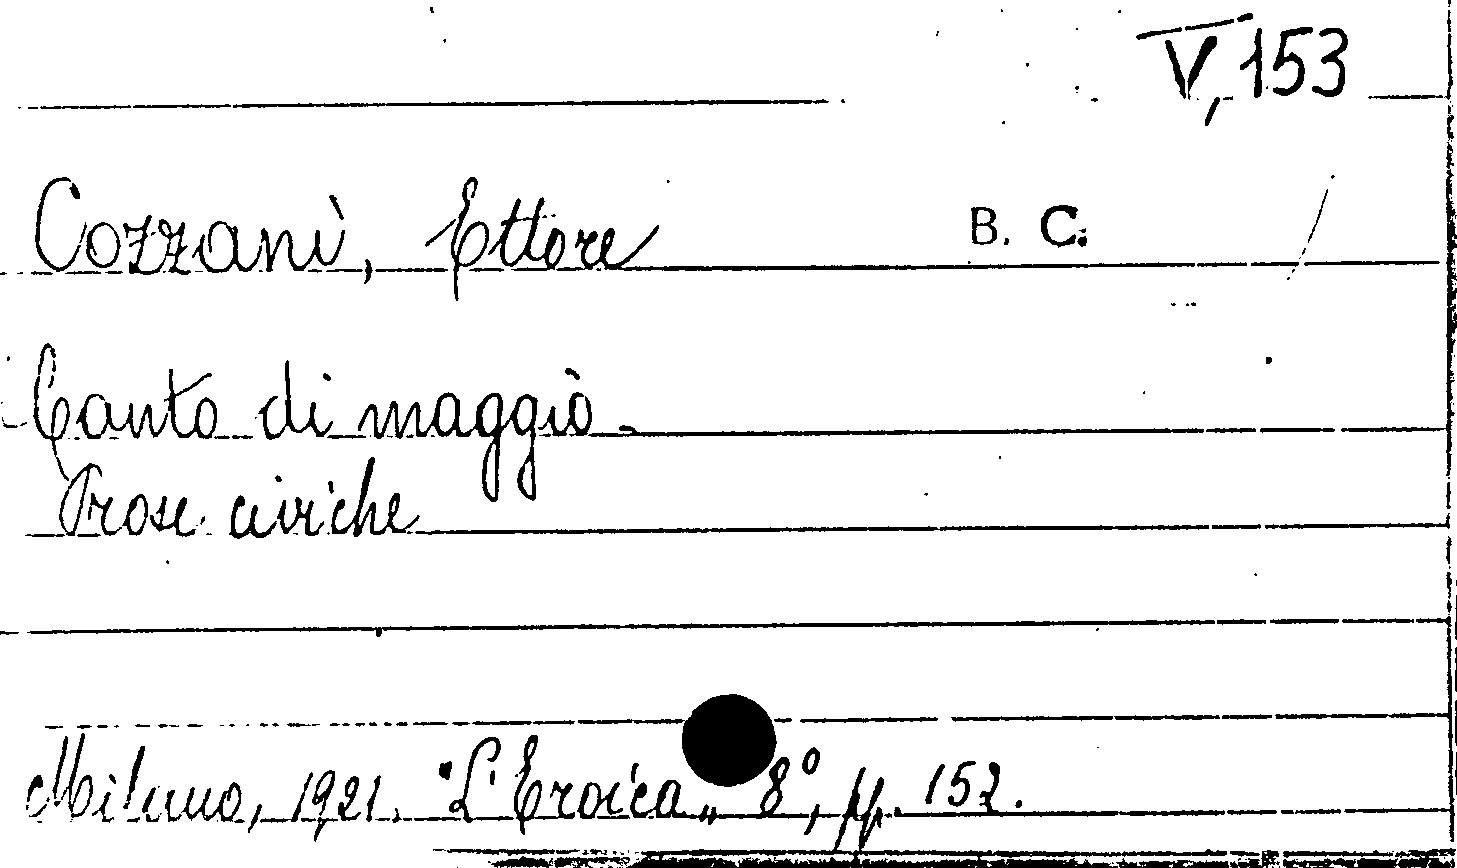 V, 153
Cozzani, Ettore B. C.
Canto di maggio.
Prose civiche
Milano, 1921. "L'Eroica„ 8°, pp. 152.